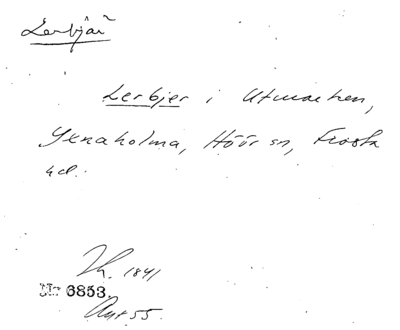 Lerbjär
Lerbjer i Utmarken,
Yxnaholma, Höör sn, Frosta
hd.
Th. 1841
Nr 6853.
Avt 55.